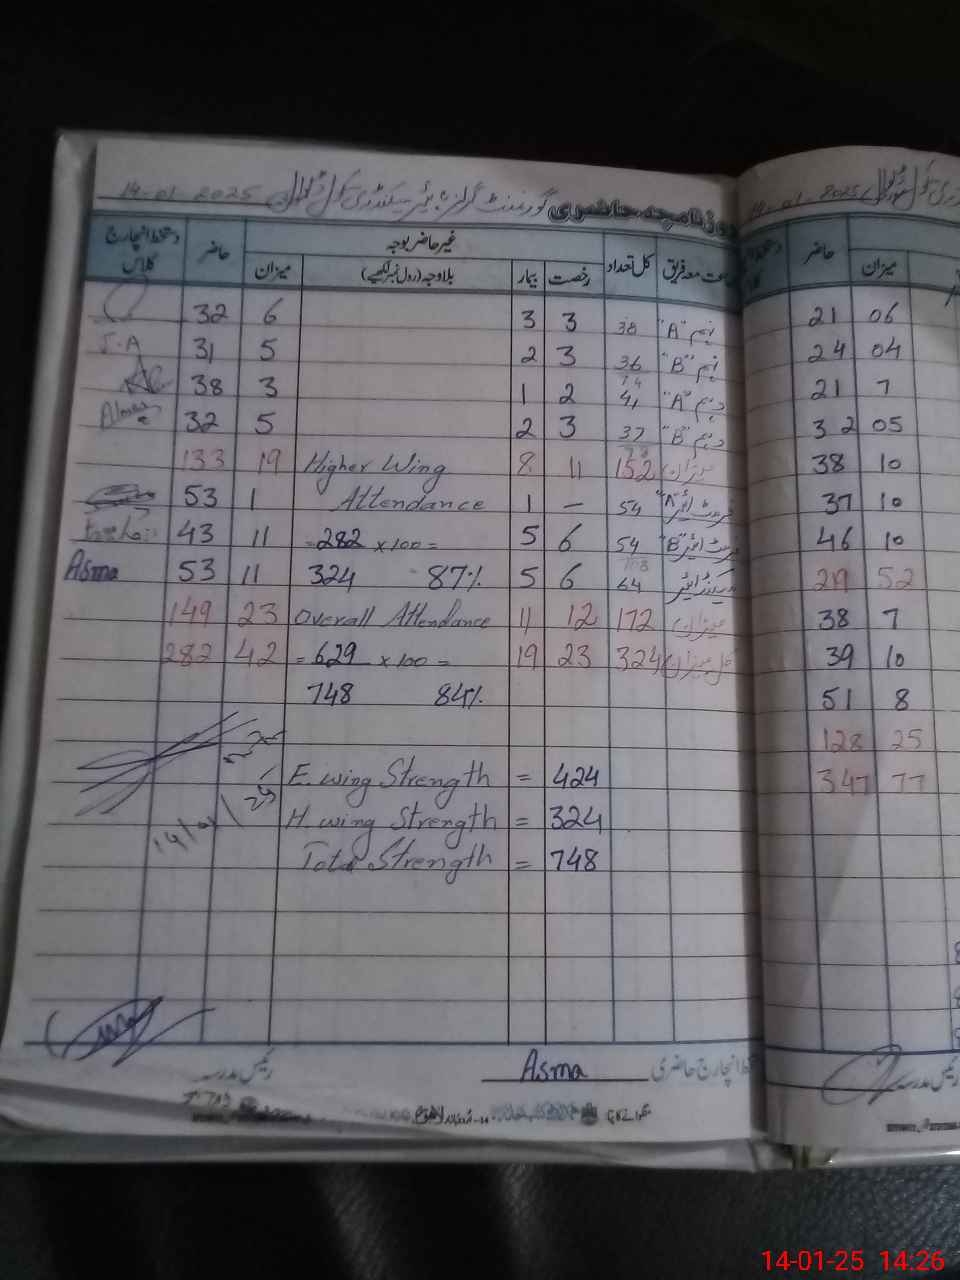 روزنامچہ حاضری گورنمنٹ گرلز ہائیر سیکنڈری سکول 14-01-2025
جماعت معہ فریق کل تعداد غیر حاضر بوجہ حاضر دستخط انچارج کلاس
رخصت بیمار بلاوجہ (رول نمبر لکھیے) میزان
نہم "A" 38 3 3 6 32
نہم "B" 36 3 2 5 31 J.A
74
دہم "A" 41 2 1 3 38
دہم "B" 37 3 2 5 32
میزان 152 11 8 Higher Wing 19 133
فرسٹ ائیر "A" 54 – 1 Attendance 1 53
فرسٹ ائیر "B" 54 6 5 = 282 x100 = 11 43
108
سیکنڈ ائیر 64 6 5 324 87% 11 53 Asma
میزان 172 12 11 Overall Attendance 23 149
کل میزان 324 23 19 = 629 x100 = 42 282
748 84%
E. wing Strength = 424
H. wing Strength = 324
Total Strength = 748
14/01/25
دستخط انچارج حاضری Asma رئیس مدرسہ
14-01-2025
حاضر
میزان
21 06
24 04
21 7
32 05
38 10
37 10
46 10
219 52
38 7
39 10
51 8
128 25
347 77
رئیس مدرسہ
14-01-25 14:26